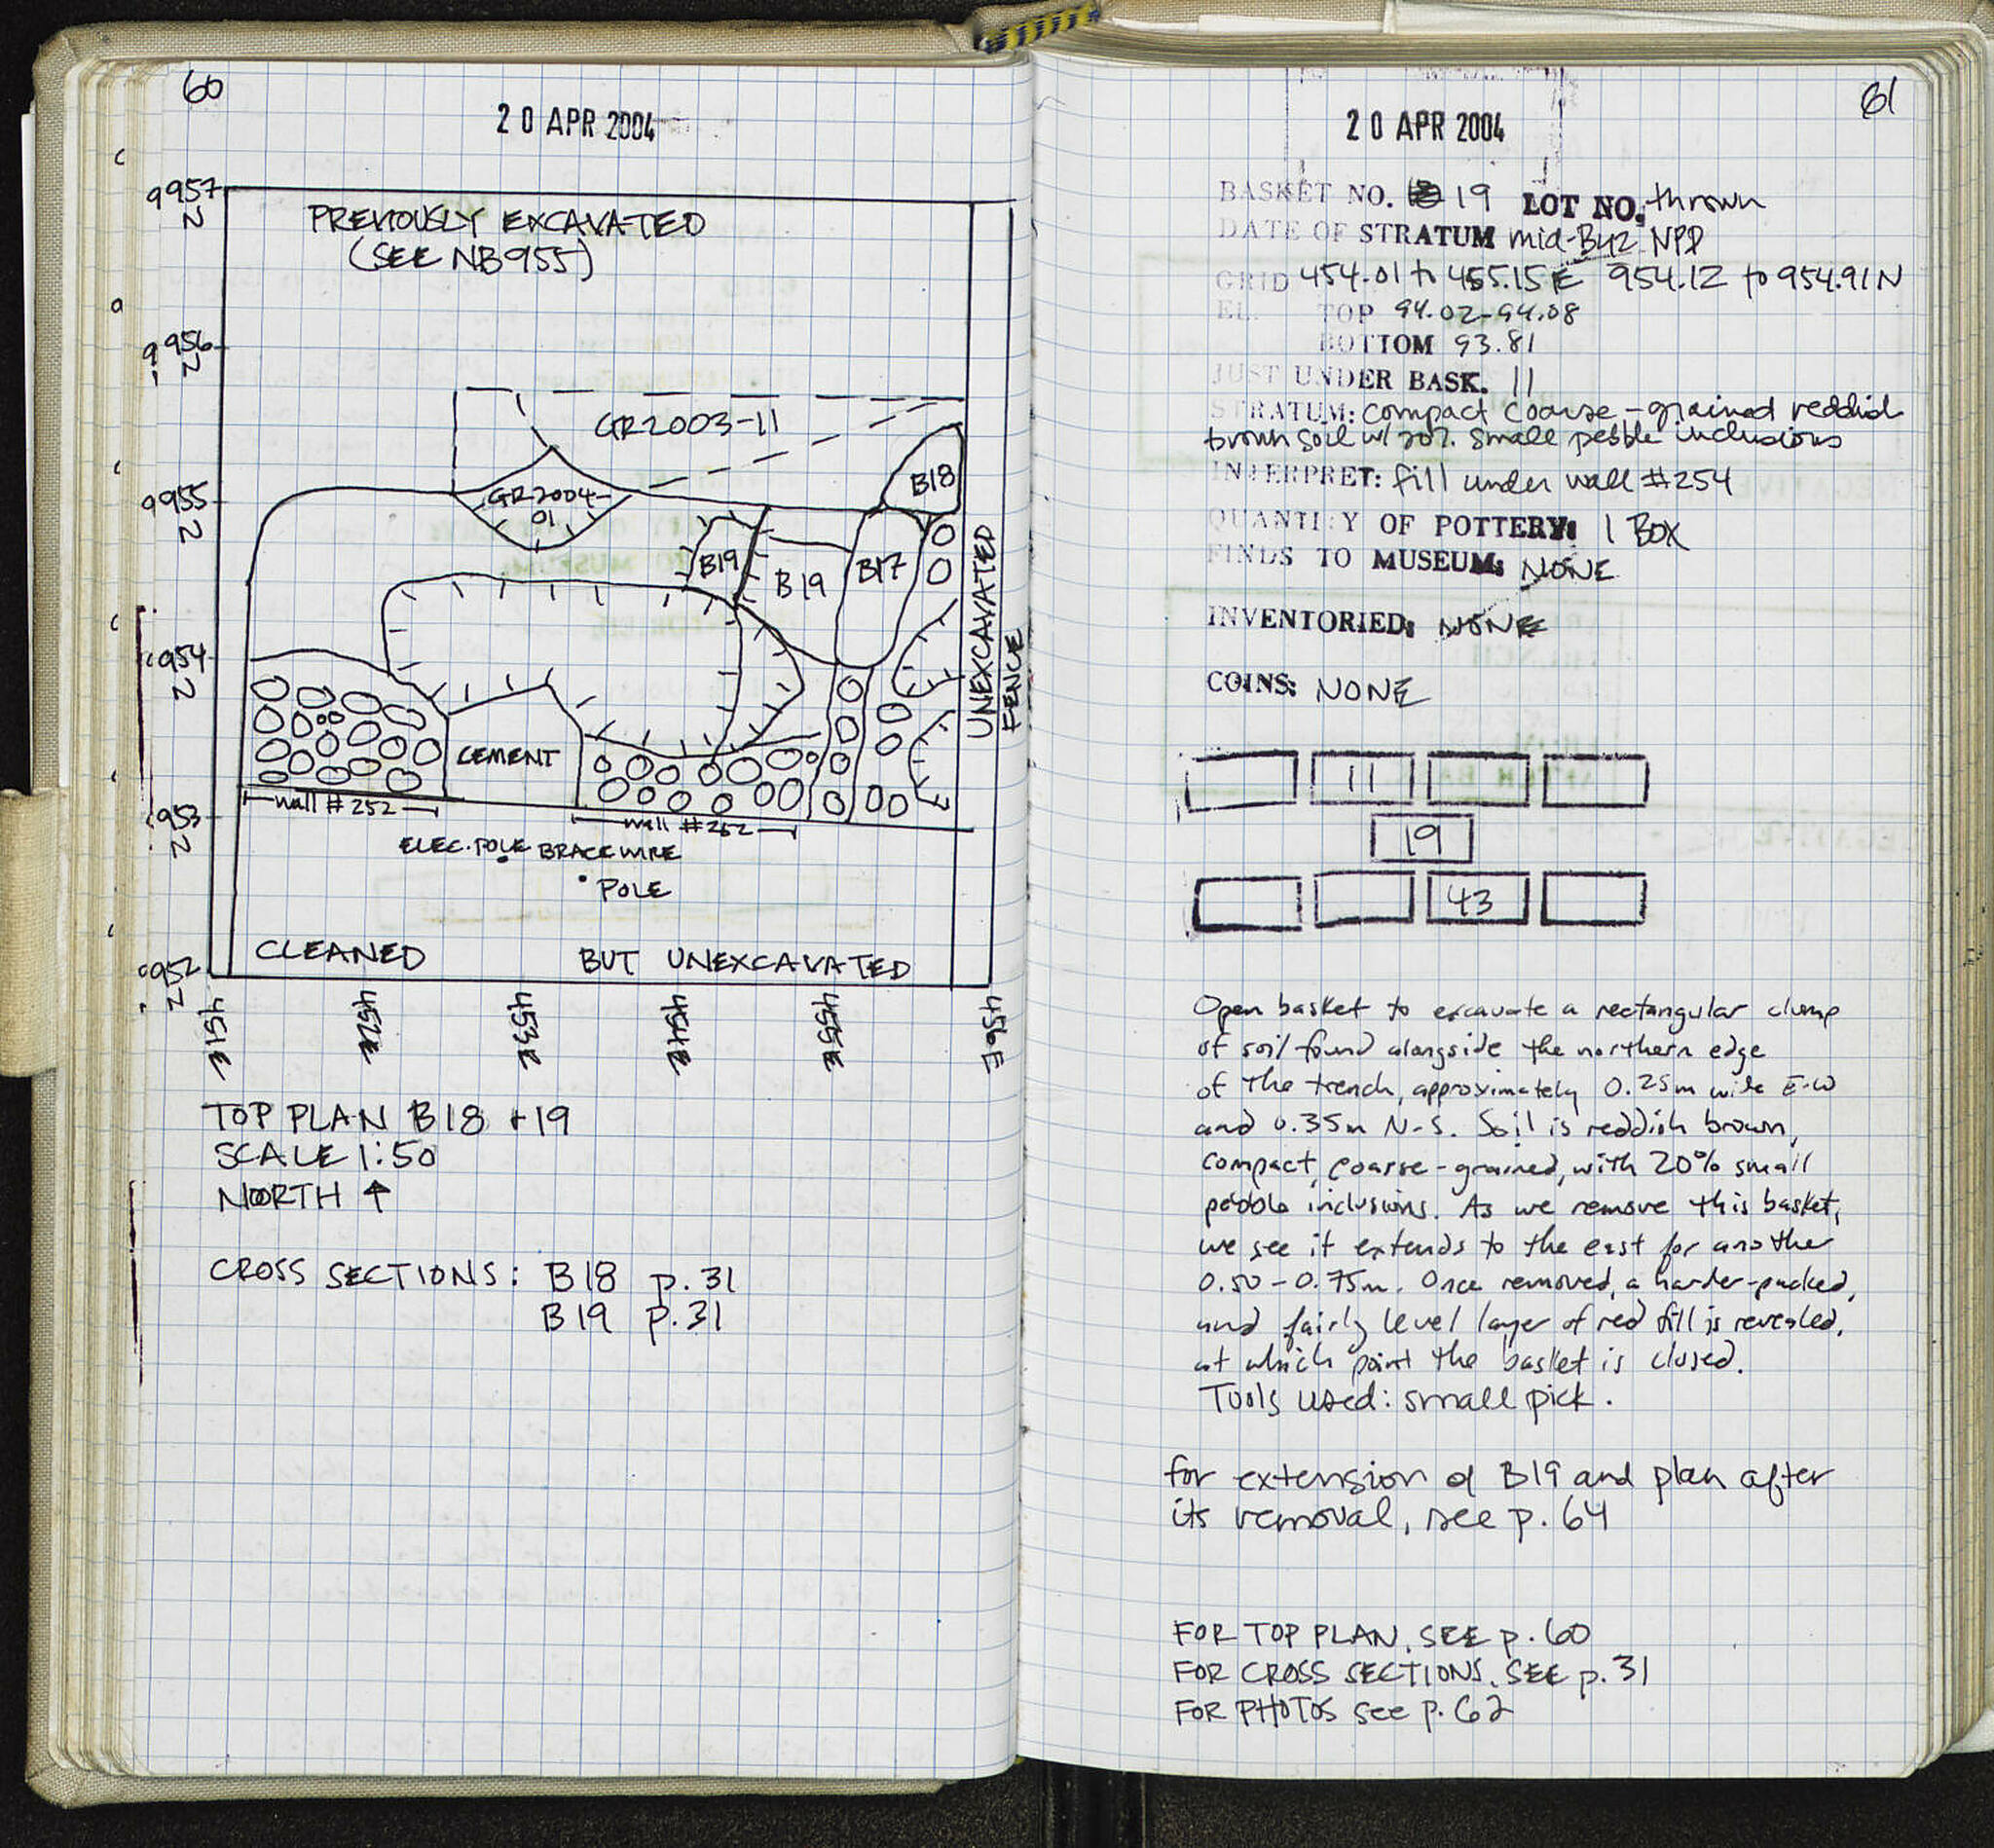 60
20 APR 2004
9957
N
PREVIOUSLY EXCAVATED
(SEE NB955)
9956
N
GR2003-11
B18
9955
N
GR2004-
01
B19
B19
B17
UNEXCAVATED
FENCE
9954
N
CEMENT
wall #252
wall #252
9953
N
ELEC. POLE BRACE WIRE
POLE
CLEANED BUT UNEXCAVATED
9952
N
451E
452E
453E
454E
455E
456E
TOP PLAN B18 +19
SCALE 1:50
NORTH ↑
CROSS SECTIONS: B18 p.31
B19 p.31
61
20 APR 2004
BASKET NO. 19 LOT NO. thrown
DATE OF STRATUM mid-Byz NPD
GRID 454.01 to 455.15E 954.12 to 954.91N
EL. TOP 94.02-94.08
BOTTOM 93.81
JUST UNDER BASK. 11
STRATUM: compact coarse-grained reddish
brown soil w/ 20% small pebble inclusions
INTERPRET: fill under wall #254
QUANTITY OF POTTERY: 1 BOX
FINDS TO MUSEUM: NONE
INVENTORIED: NONE
COINS: NONE
11
19
43
Open basket to excavate a rectangular clump
of soil found alongside the northern edge
of the trench, approximately 0.25m wide E-W
and 0.35m N-S. Soil is reddish brown,
compact, coarse-grained, with 20% small
pebble inclusions. As we remove this basket,
we see it extends to the east for another
0.50-0.75m. Once removed, a harder-packed,
and fairly level layer of red fill is revealed,
at which point the basket is closed.
Tools used: small pick.
for extension of B19 and plan after
its removal, see p. 64
FOR TOP PLAN, SEE p. 60
FOR CROSS SECTIONS, SEE p. 31
FOR PHOTOS see p. 62